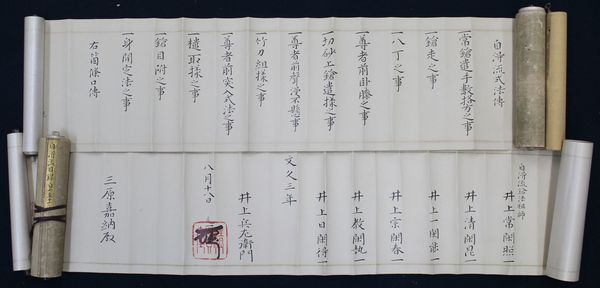 自得流式法傳
一常鎗遣手數捨方之事
一鎗走之事
一八丁之事
一尊者前卦勝之事
一切砂上鎗遣様之事
一尊者前聲浸不懸事
一竹刀組様之事
一尊者前突入式法之事
一槍取様之事
一鎗目附之事
一身開定法之事
右箇條口傳
自得流鎗法祖師
井上常閑照一
井上清閑昆一
井上一閑
井上宗閑春一
井上教閑執一
井上日閑得一
文久三年
井上兵左衛門
八月十八日
三原嘉納殿